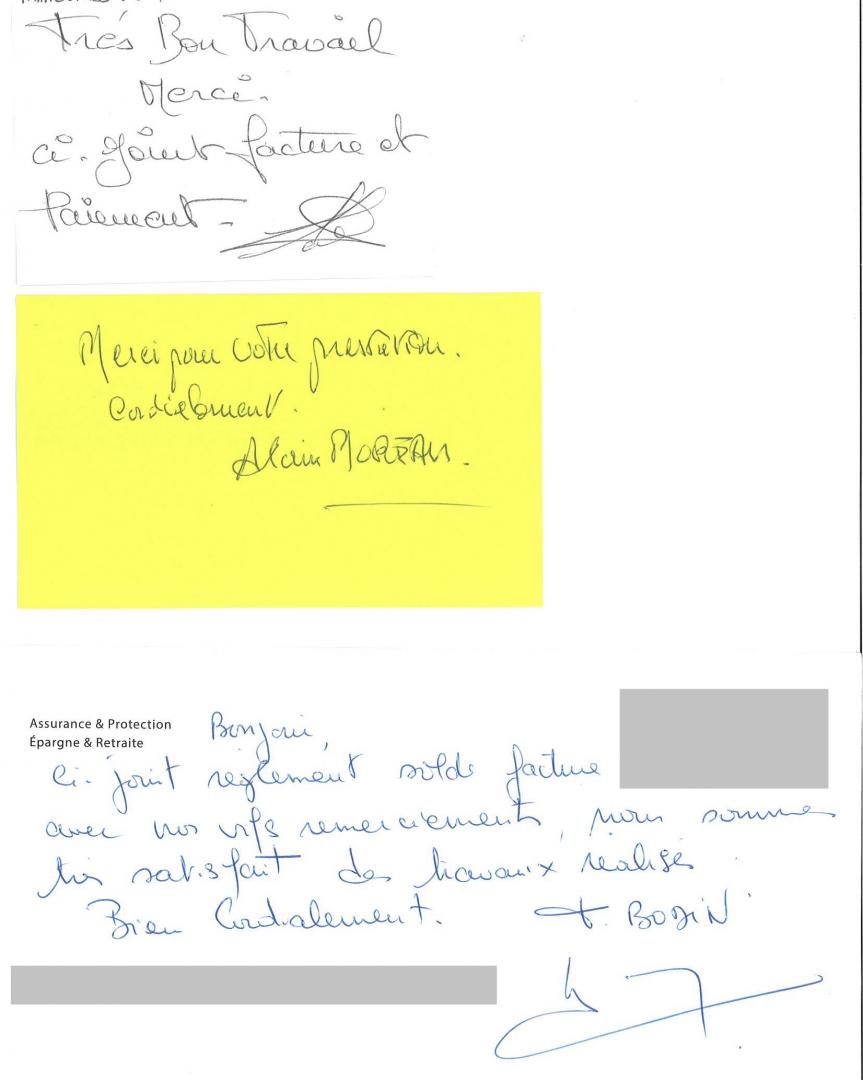 Très Bon Travail
Merci.
ci. joint facture et
Paiement -
Merci pour votre prestation.
Cordialement.
Alain MOREAU.
Assurance & Protection
Épargne & Retraite
Bonjour,
Ci-joint règlement solde facture
avec nos vifs remerciements, nous sommes
très satisfait des travaux réalisés
Bien Cordialement.
F. BODIN